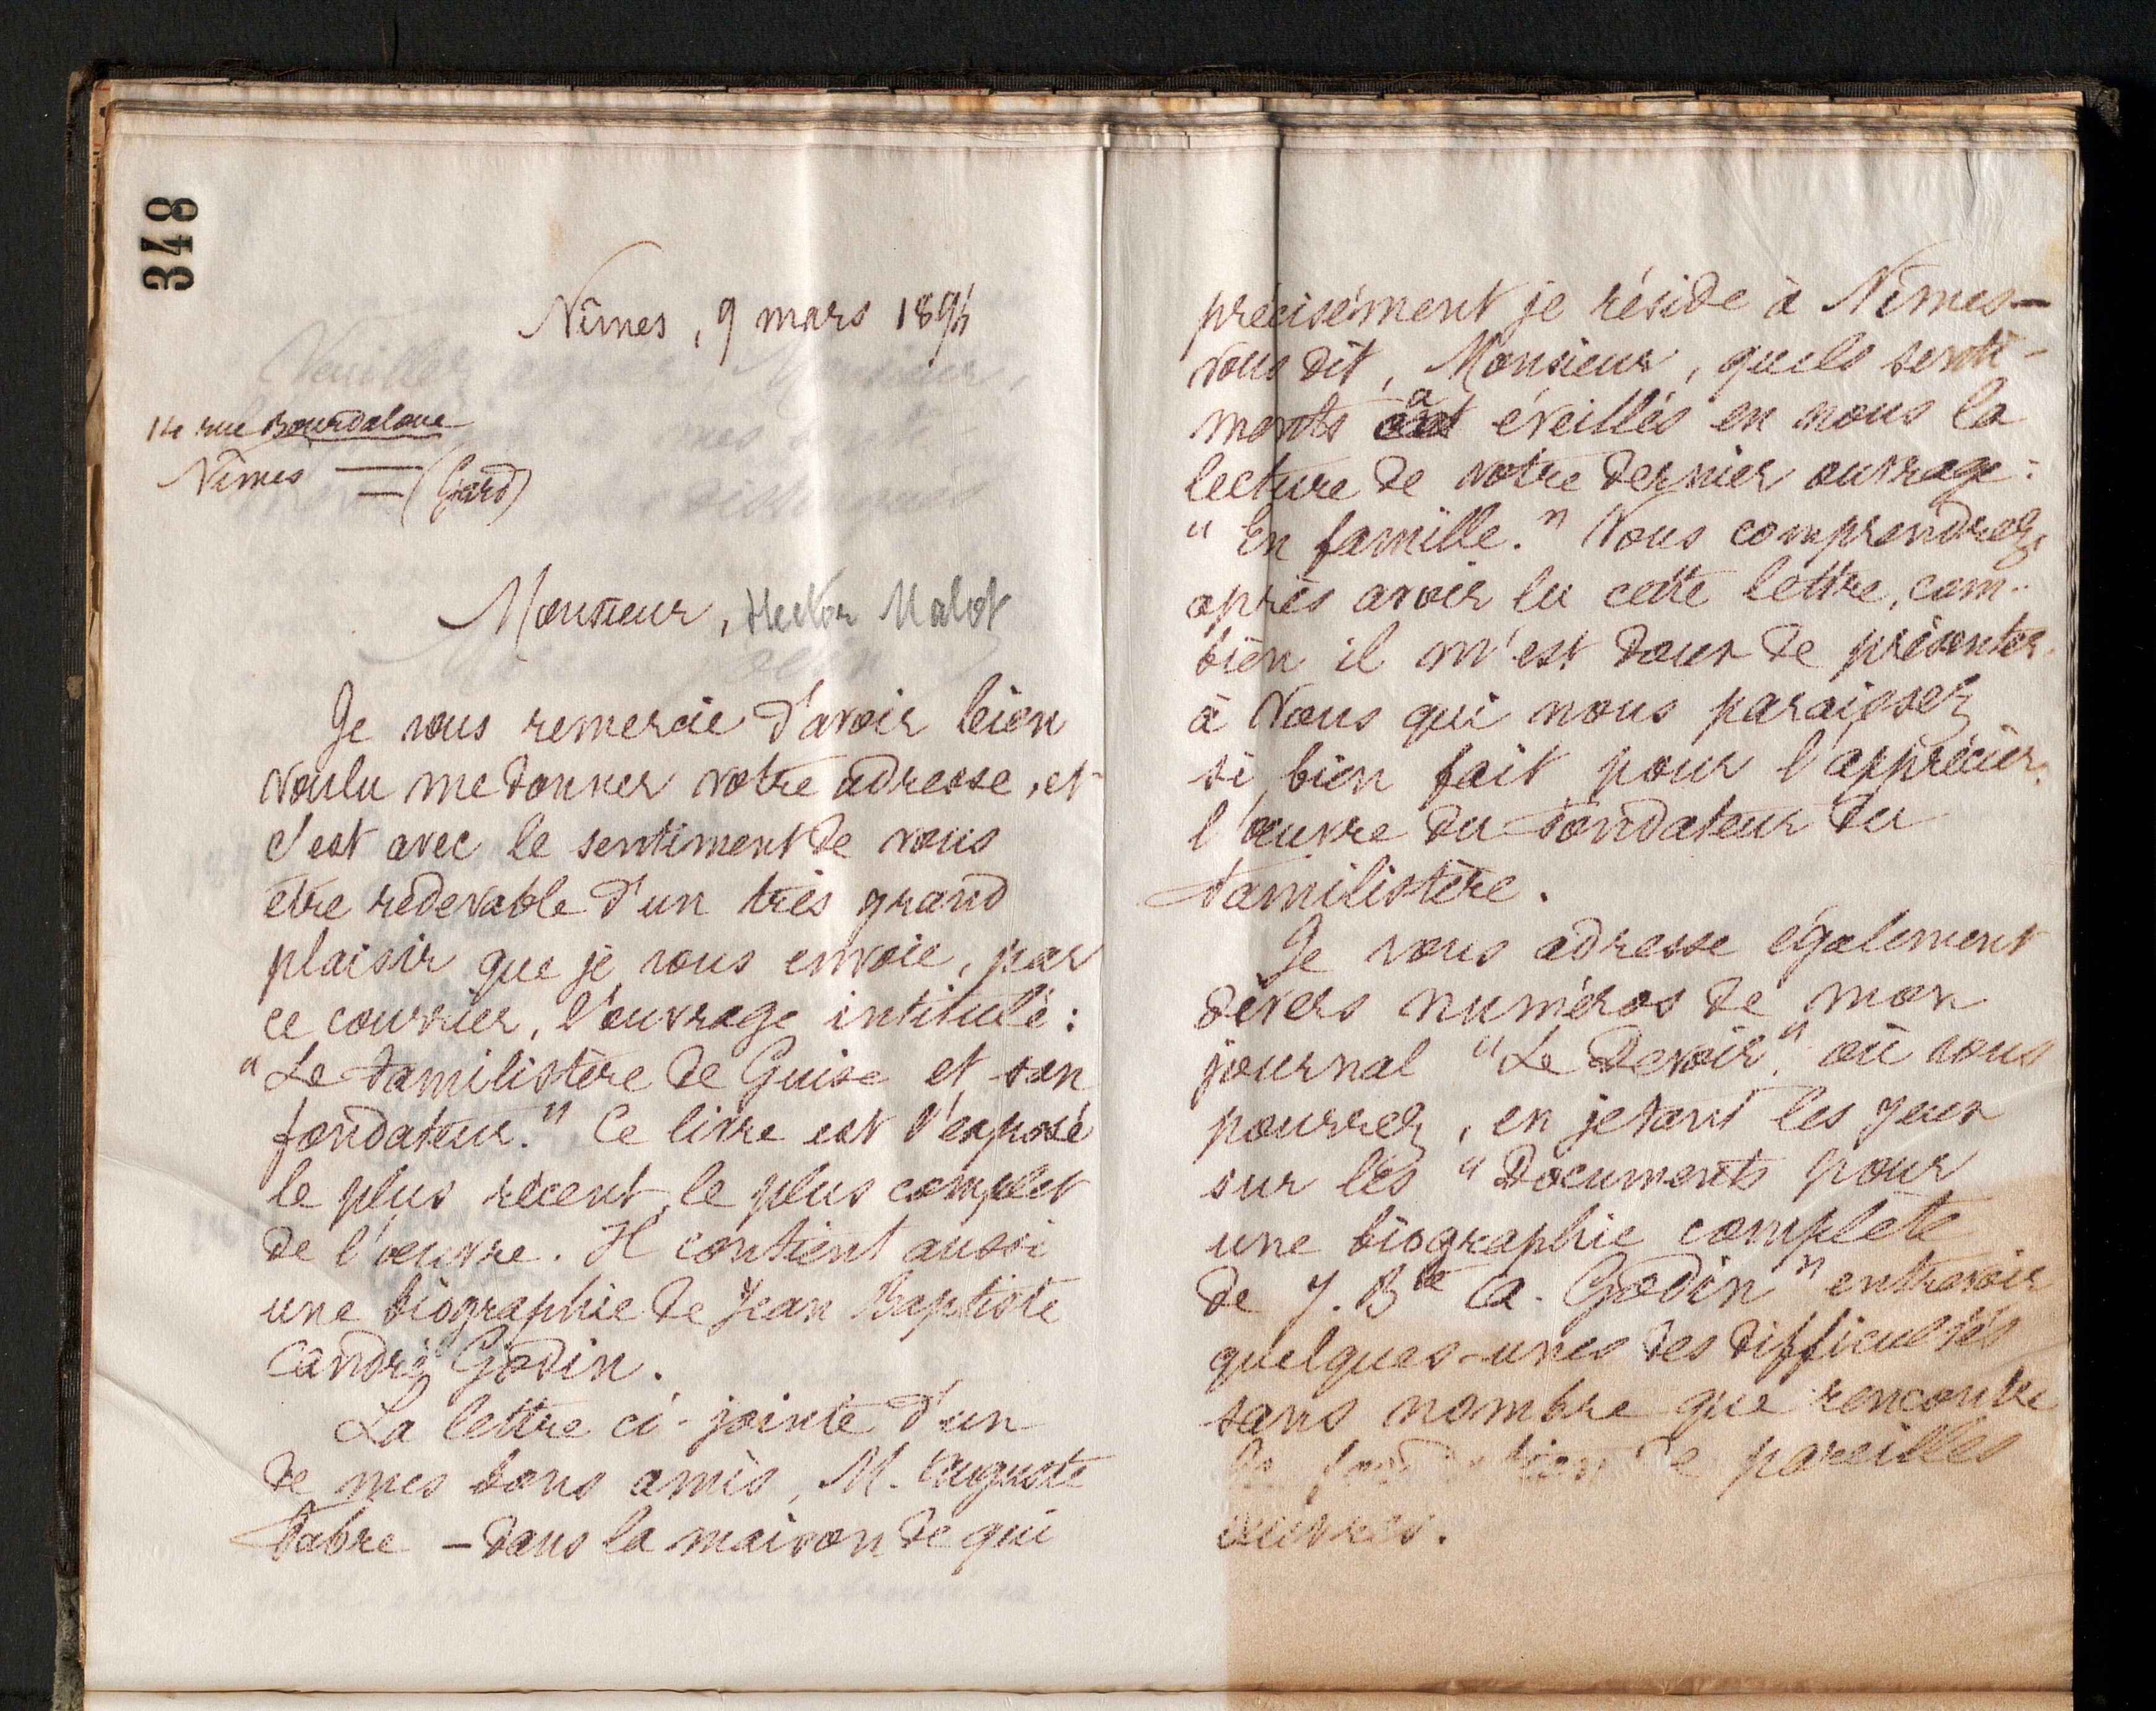 348
Nîmes, 9 mars 1894
14 rue Bourdaloue
Nîmes — (Gard)
Monsieur, Hector Malot
Je vous remercie d'avoir bien
voulu me donner votre adresse, et
c'est avec le sentiment de vous
être redevable d'un très grand
plaisir que je vous envoie, par
ce courrier, l'ouvrage intitulé :
"Le Familistère de Guise et son
fondateur." Ce livre est l'exposé
le plus récent, le plus complet
de l'œuvre. Il contient aussi
une biographie de Jean Baptiste
André Godin.
La lettre ci-jointe d'un
de mes bons amis, M. Auguste
Fabre – dans la maison de qui
précisément je réside à Nîmes –
vous dit, Monsieur, quels senti-
ments a éveillés en nous la
lecture de votre dernier ouvrage :
"En famille." Vous comprendrez,
après avoir lu cette lettre, com-
bien il m'est doux de présenter
à Vous qui nous paraissez
si bien fait pour l'apprécier,
l'œuvre du Fondateur du
Familistère.
Je vous adresse également
divers numéros de mon
journal "Le Devoir", où vous
pourrez, en jetant les yeux
sur les "Documents pour
une biographie complète
de J. Bte A. Godin" entrevoir
quelques-unes des difficultés
sans nombre que rencontre
la fondation de pareilles
œuvres.